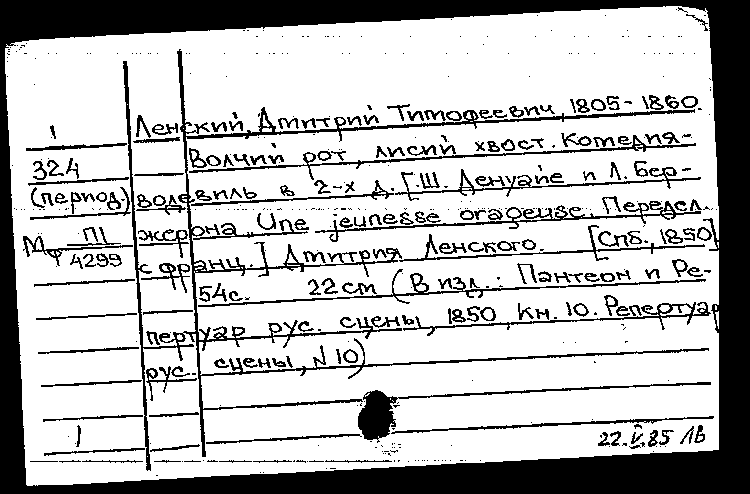 1
Ленский, Дмитрий Тимофеевич, 1805-1860.
324
Волчий рот, лисий хвост. Комедия-
(период)
водевиль в 2-х д. [Ш. Денуайе и Л. Бер-
Мф П1/4299
жерона. Une jeunesse orageuse. Передел.
с франц.] Дмитрия Ленского. [Спб., 1850]
54с. 22 cm (В изд.: Пантеон и Ре-
пертуар рус. сцены, 1850, кн. 10. Репертуар
рус. сцены, N 10)
1
22.V.85 ЛВ